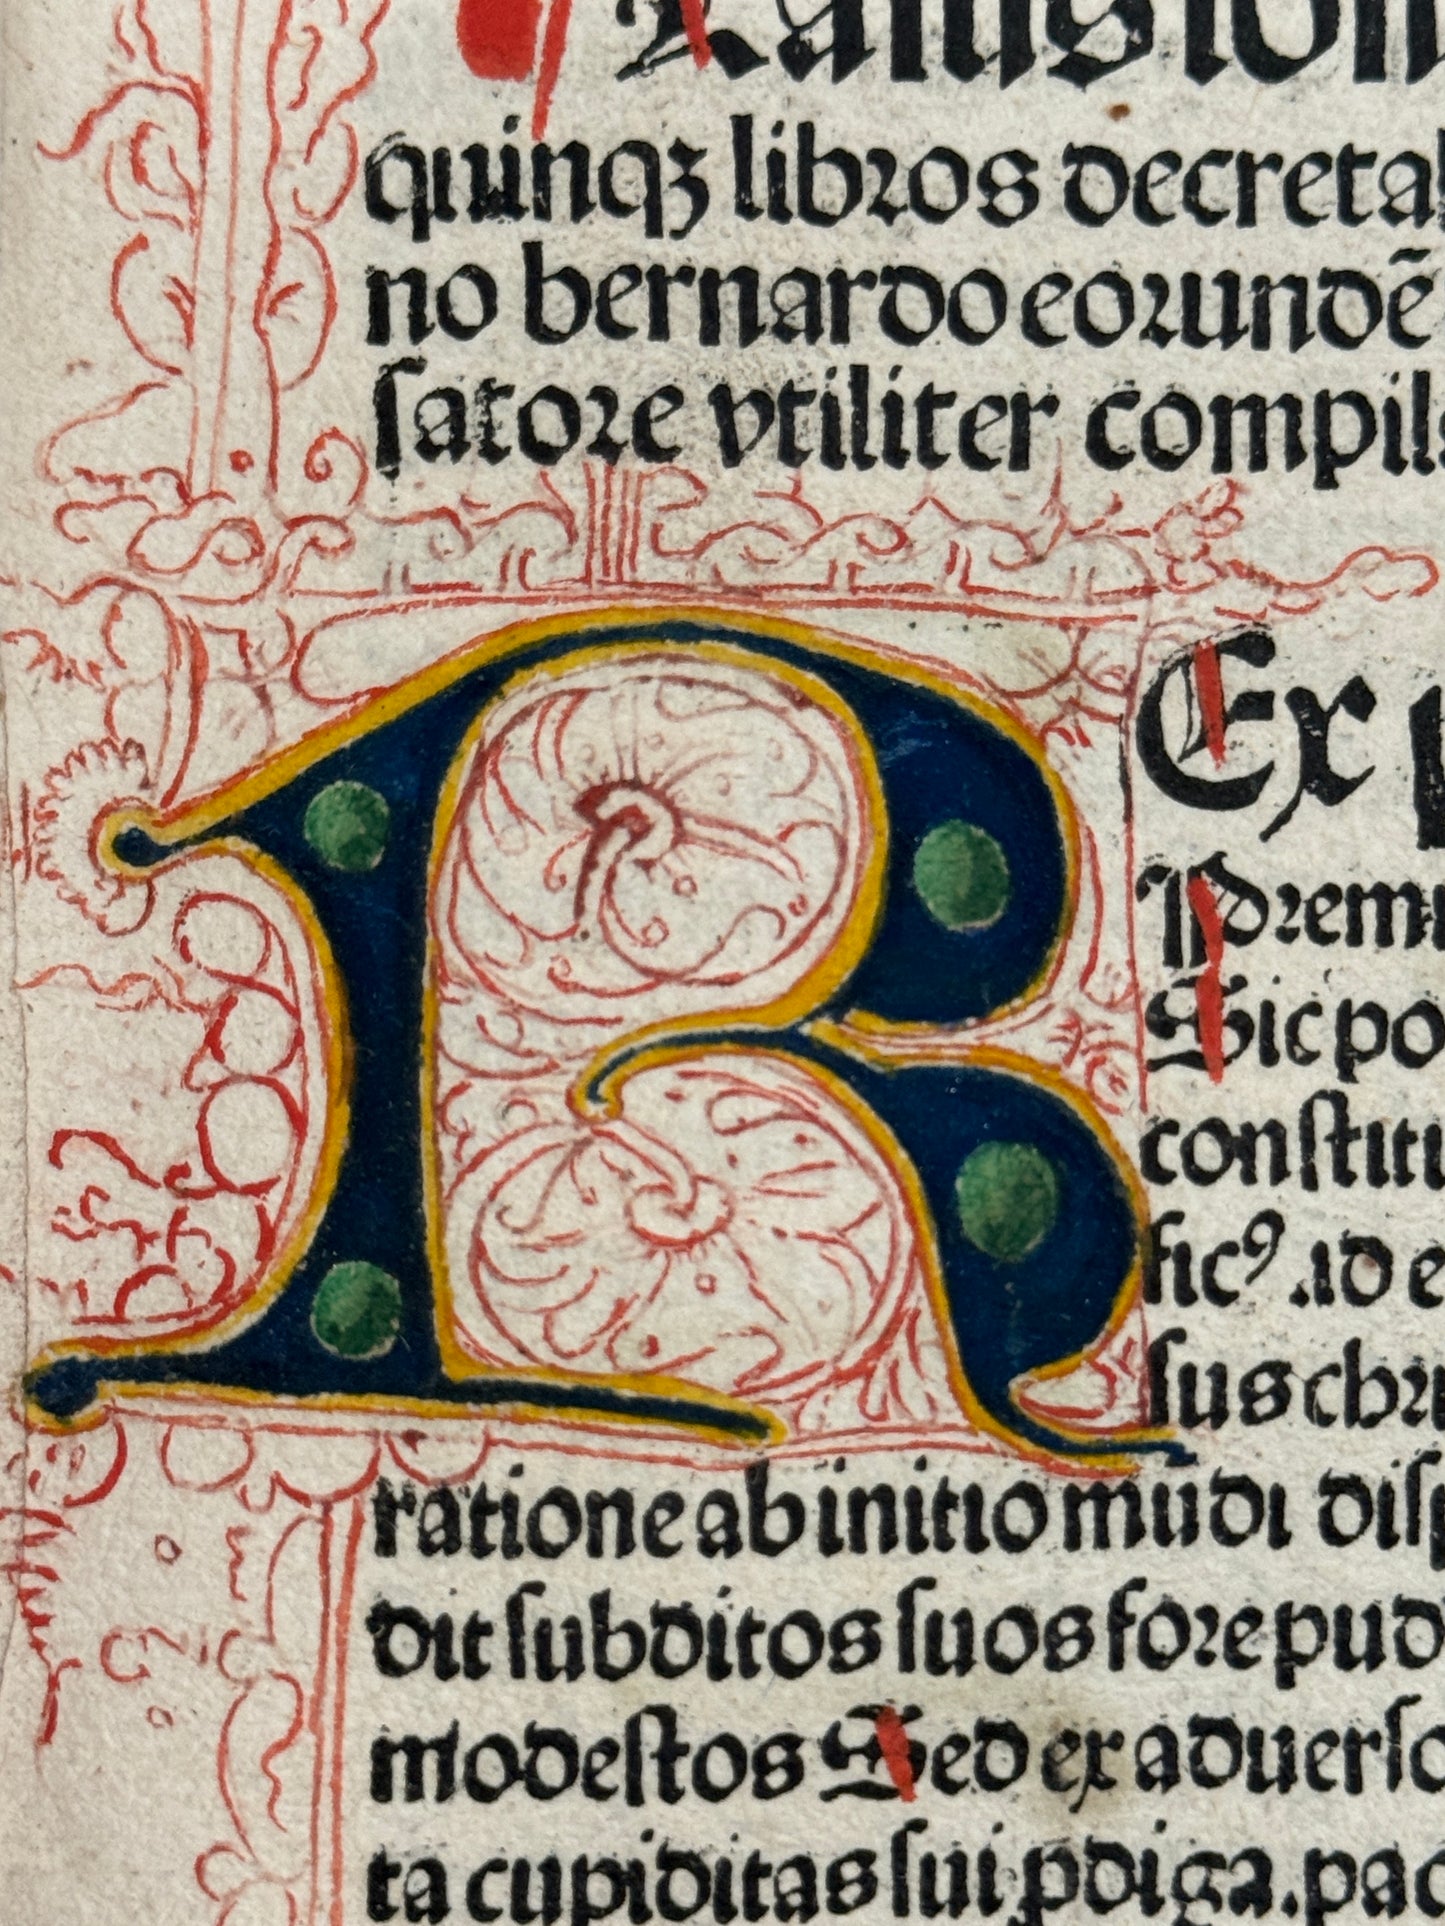 quinqꝫ libros decretal
no bernardo eorundē
ſatore vtiliter compil
R Ex p
dremi
Sic po
conſtitu
ficꝰ .id e
ſus chri
ratione ab initio mūdi diſp
dit ſubditos ſuos fore pud
modeſtos Sed ex aduerſo
ta cupiditas ſui ꝓdiga.pac